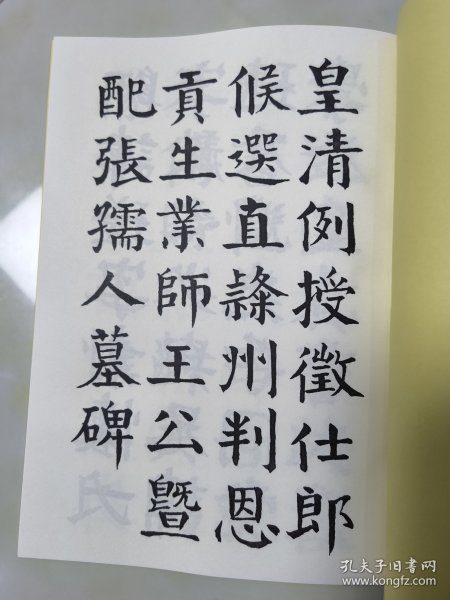 皇清例授徵仕郎
候選直隸州判恩
貢生業師王公暨
配張孺人墓碑
孔夫子旧书网
www.kongfz.com